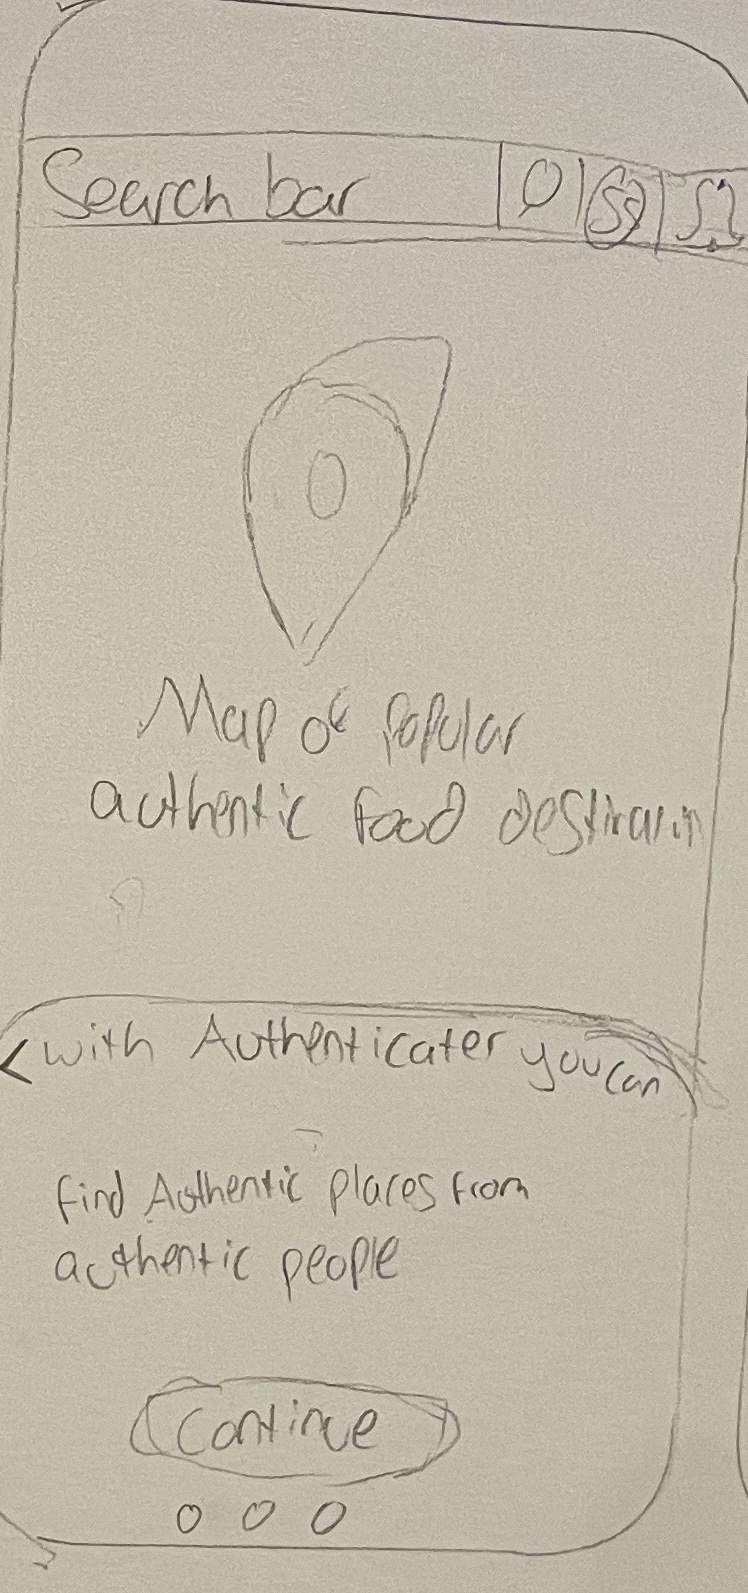 Search bar
Map of popular
authentic food
< with Authenticater you can
find Authentic places from
authentic people
Continue